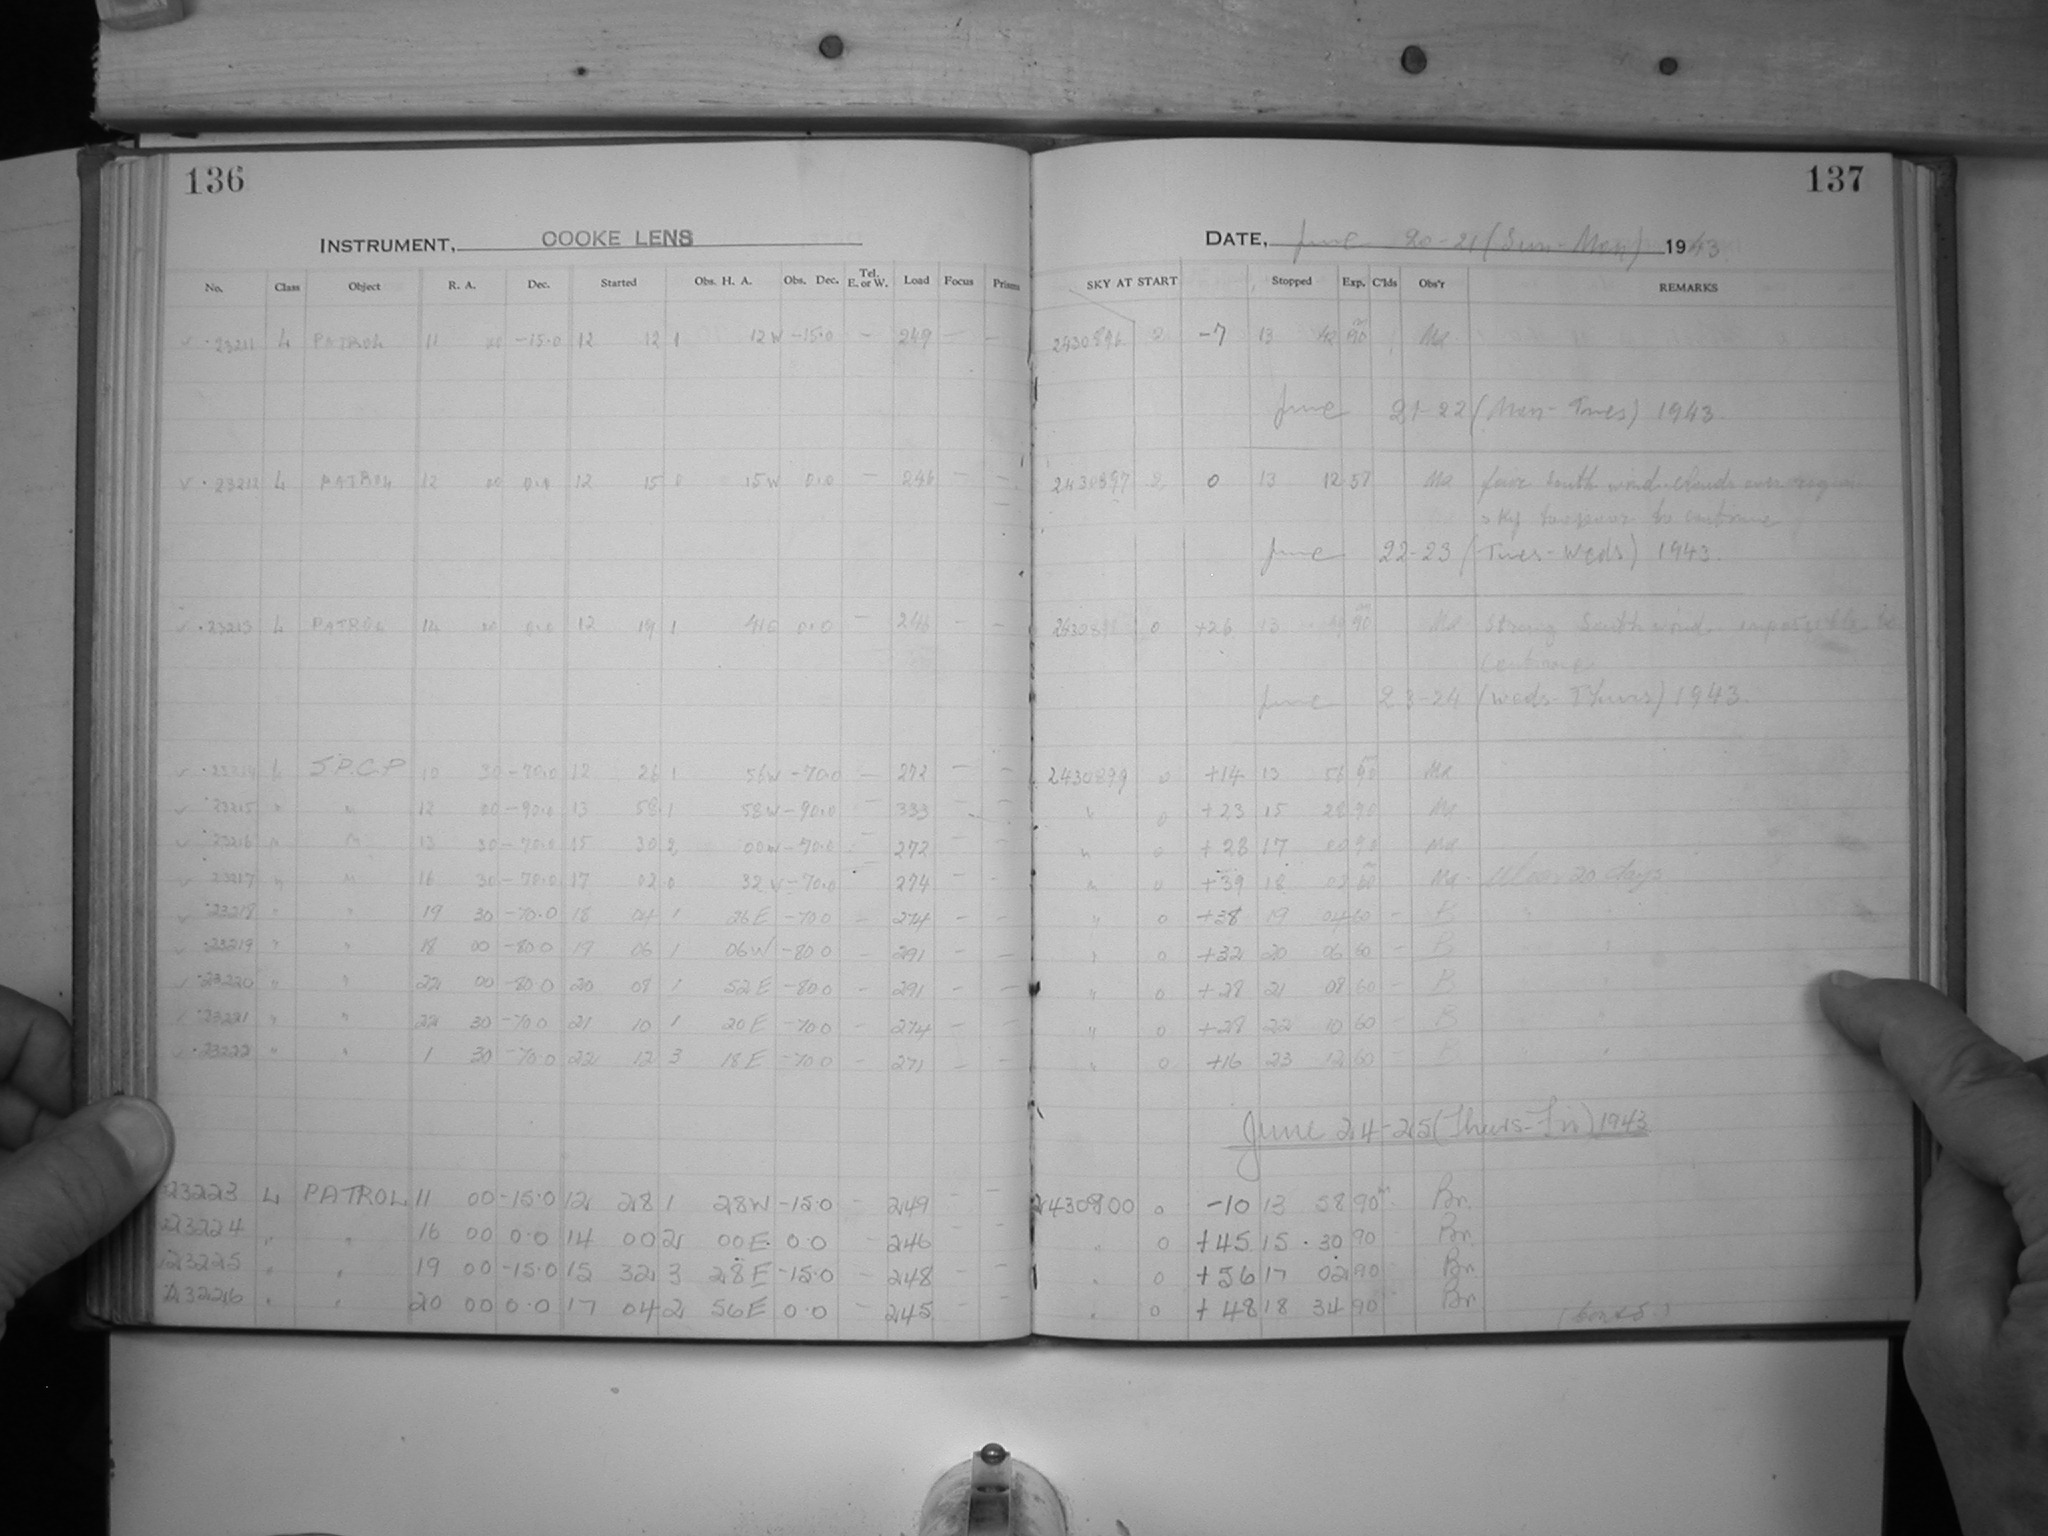 136
137
INSTRUMENT, COOKE LENS
DATE, June 20-21 (Sun-Mon) 1943
No. Class Object R. A. Dec. Started Obs. H. A. Obs. Dec. Tel. E. or W. Load Focus Prisms SKY AT START Stopped Exp. C'lds Obs'r REMARKS
23211 L PATROL 11 00 -15.0 12 12 1 12W -15.0 - 249 - - 2430896 2 -7 13 42 90 Ma
June 21-22 (Mon-Tues) 1943
23212 L PATROL 12 00 0.0 12 15 0 15W 0.0 - 246 - - 2430897 2 0 13 12 57 Ma South wind clouds over region
sky to continue
June 22-23 (Tues-Weds) 1943.
23213 L PATROL 14 00 0.0 12 19 1 41E 0.0 - 246 - - 0 +26 13 90 Ma Strong South wind. impossible to
continue
June 23-24 (Weds-Thurs) 1943.
23214 L S.P.C.P 10 30 -70.0 12 26 1 56W -70.0 - 272 - - 2430899 0 +14 13 56 90 Ma
23215 " " 12 00 -90.0 13 58 1 58W -90.0 - 333 - - " 0 +23 15 28 90 Ma
23216 " " 13 30 -70.0 15 30 2 00W -70.0 - 272 - - " 0 +28 17 00 90 Ma
23217 " " 16 30 -70.0 17 02 0 32W -70.0 - 274 - - " 0 +39 18 02 60 Ma 20 days
23218 " " 19 30 -70.0 18 04 1 26E -70.0 - 274 - - " 0 +38 19 04 60 - B
23219 " " 18 00 -80.0 19 06 1 06W -80.0 - 291 - - " 0 +32 20 06 60 - B
23220 " " 22 00 -80.0 20 08 1 52E -80.0 - 291 - - " 0 +28 21 08 60 - B
23221 " " 22 30 -70.0 21 10 1 20E -70.0 - 274 - - " 0 +28 22 10 60 - B
23222 " " 1 30 -70.0 22 12 3 18E -70.0 - 271 - - " 0 +16 23 12 60 - B
June 24-25 (Thurs-Fri) 1943
23223 L PATROL 11 00 -15.0 12 28 1 28W -15.0 - 249 - - 2430900 0 -10 13 58 90m Bn.
23224 " " 16 00 0.0 14 00 2 00E 0.0 - 246 - - " 0 +45 15 30 90 Bn.
23225 " " 19 00 -15.0 15 32 3 28E -15.0 - 248 - - " 0 +56 17 02 90 Bn.
23226 " " 20 00 0.0 17 04 2 56E 0.0 - 245 - - " 0 +48 18 34 90 Bn.